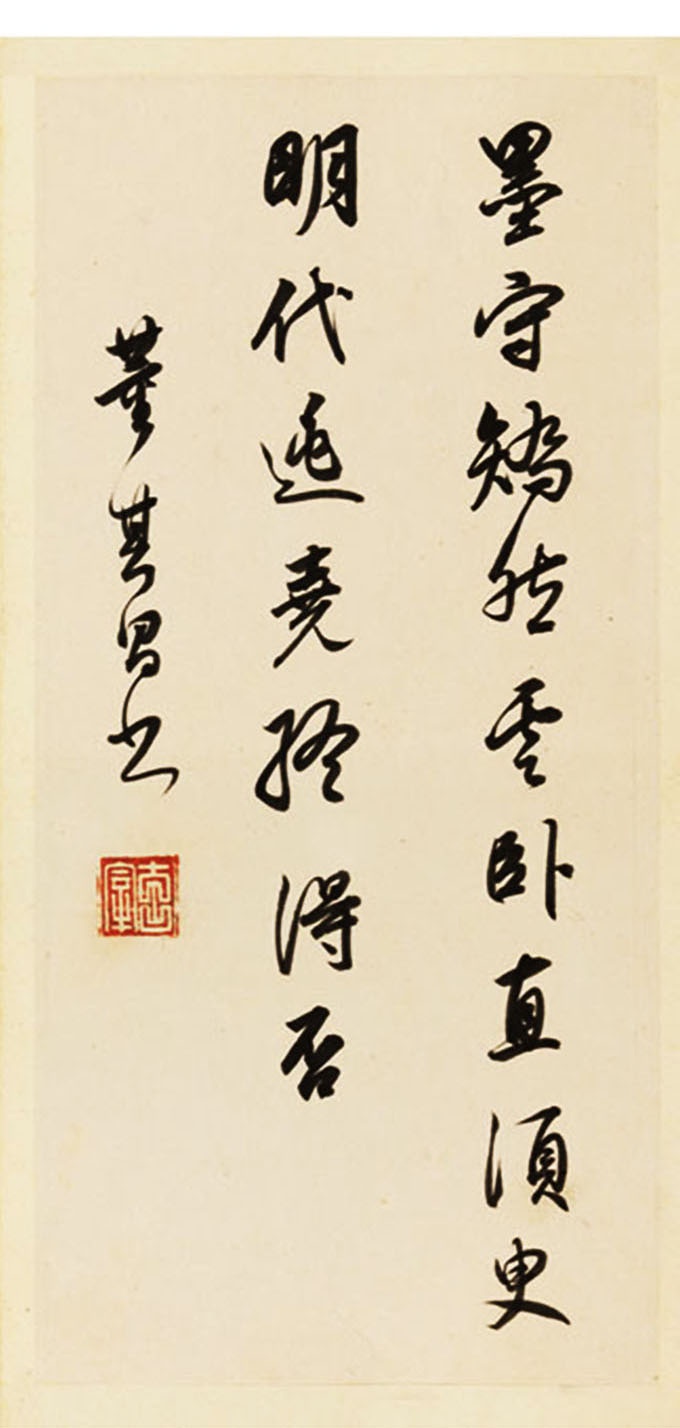 墨守矯然雲臥直須臾
明代逃堯終得否
董其昌書